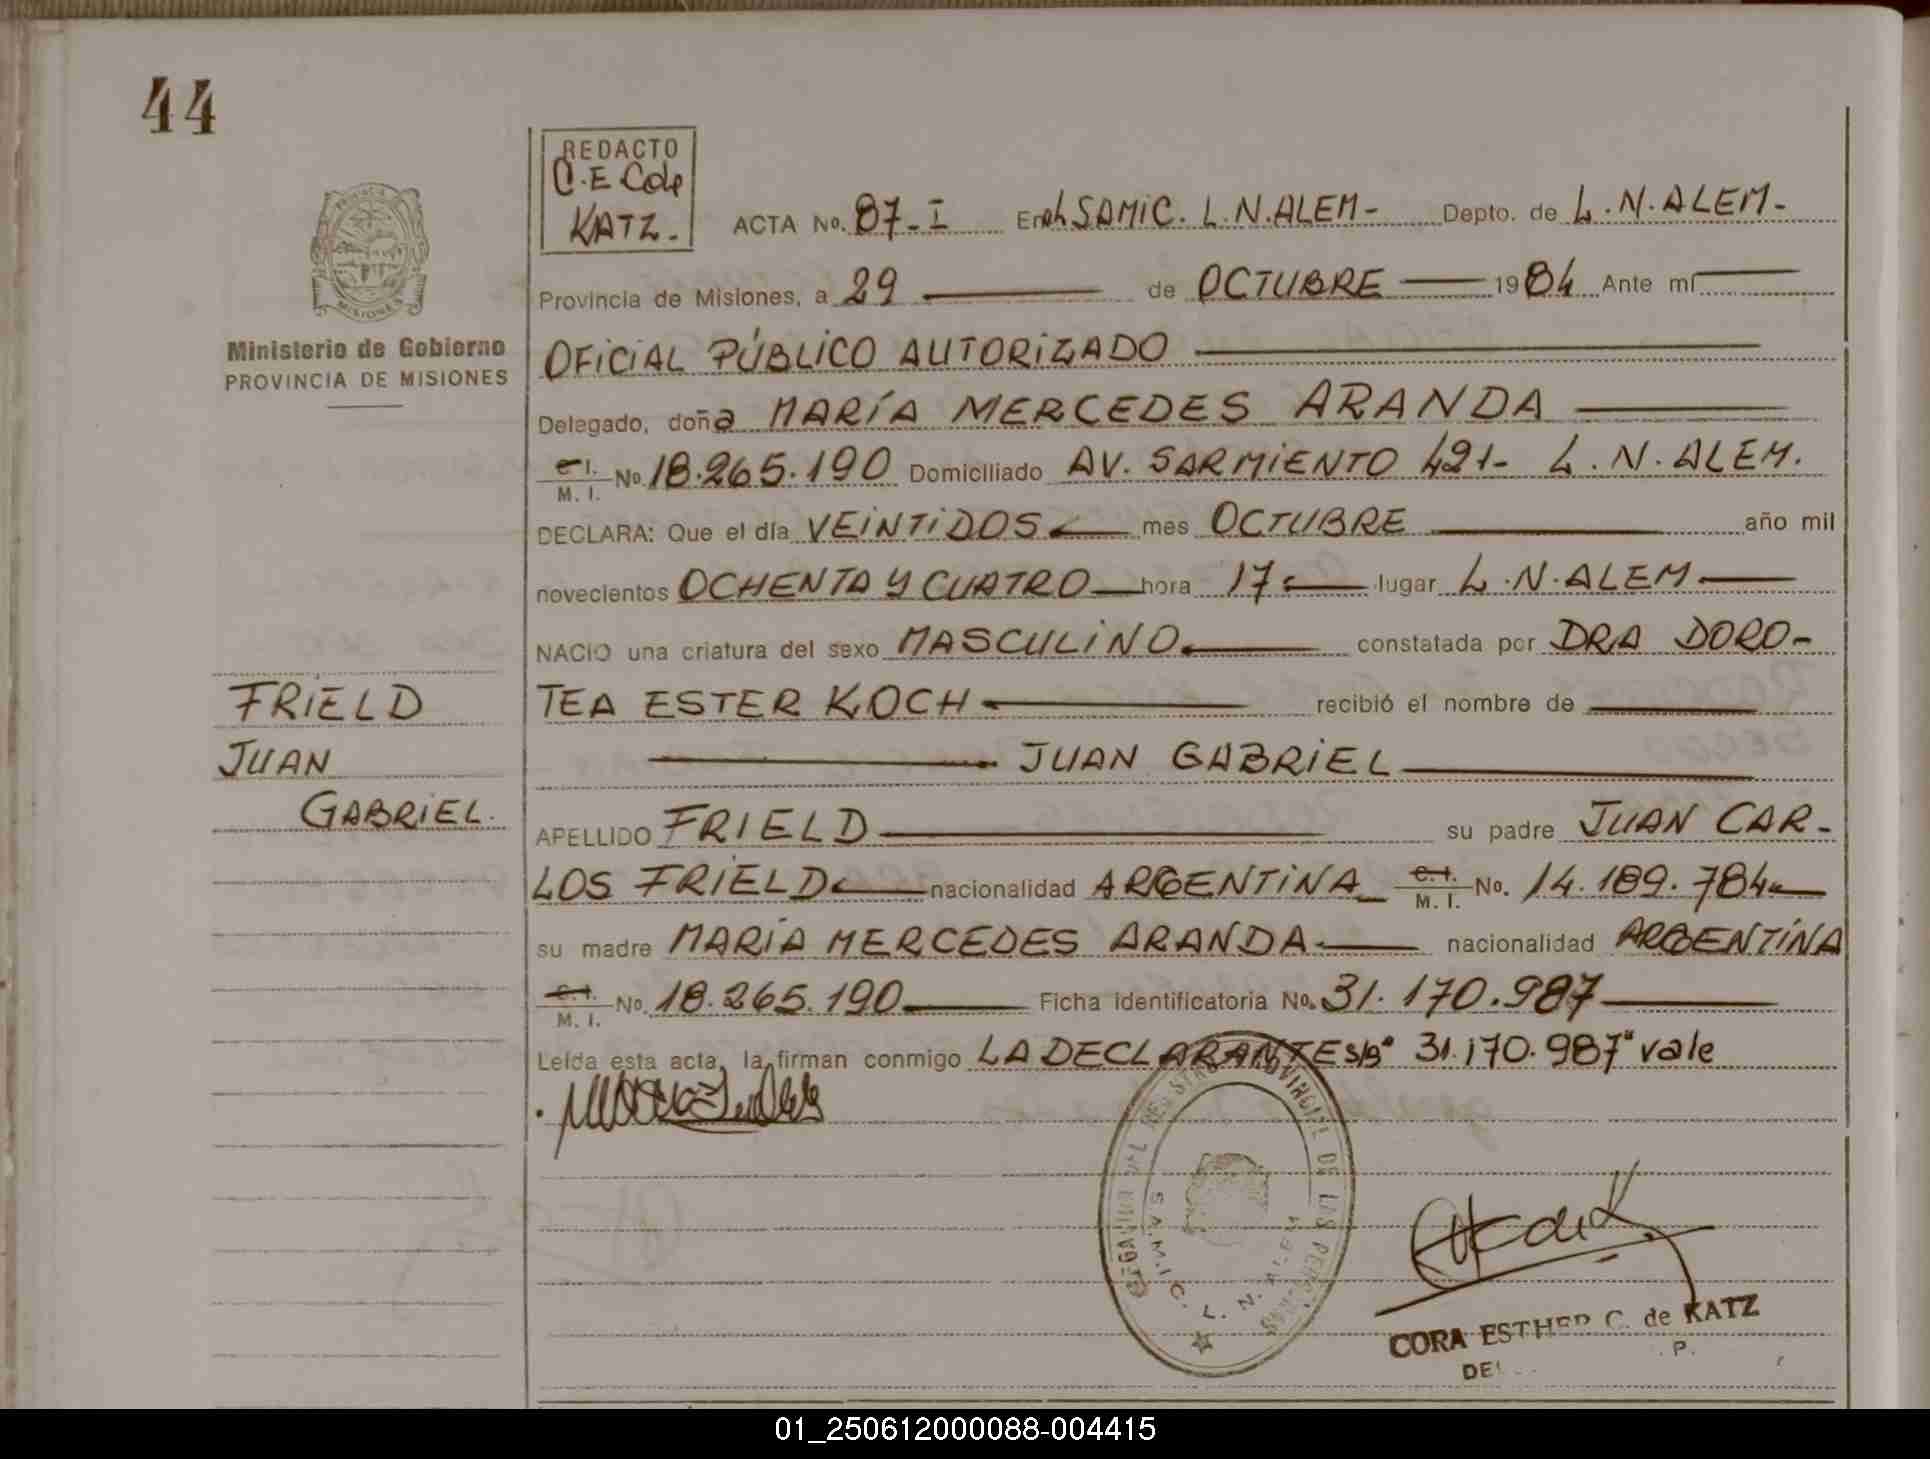 44
REDACTO
C.E Cde
KATZ.-
ACTA No. 87-I En el SAMIC. L.N.ALEM- Depto. de L.N.ALEM-
Provincia de Misiones, a 29 de OCTUBRE 1984 Ante mí
Ministerio de Gobierno
PROVINCIA DE MISIONES
OFICIAL PÚBLICO AUTORIZADO
Delegado, doña MARÍA MERCEDES ARANDA
C.I.
M. I. No. 18.265.190 Domiciliado AV. SARMIENTO 421- L.N.ALEM.
DECLARA: Que el día VEINTIDOS mes OCTUBRE año mil
novecientos OCHENTA Y CUATRO hora 17 lugar L.N.ALEM
NACIO una criatura del sexo MASCULINO constatada por DRA DORO-
TEA ESTER KOCH recibió el nombre de
JUAN GABRIEL
FRIELD
JUAN
GABRIEL.
APELLIDO FRIELD su padre JUAN CAR-
LOS FRIELD nacionalidad ARGENTINA C.I.
M. I. No. 14.189.784
su madre MARÍA MERCEDES ARANDA nacionalidad ARGENTINA
C.I.
M. I. No. 18.265.190 Ficha identificatoria No. 31.170.987
Leída esta acta, la firman conmigo LA DECLARANTE s/b" 31.170.987" vale
DEL REGISTRO PROVINCIAL DE LAS PERSONAS
S.A.M.I.C. L. N. ALEM
CORA ESTHER C. de KATZ
01_250612000088-004415